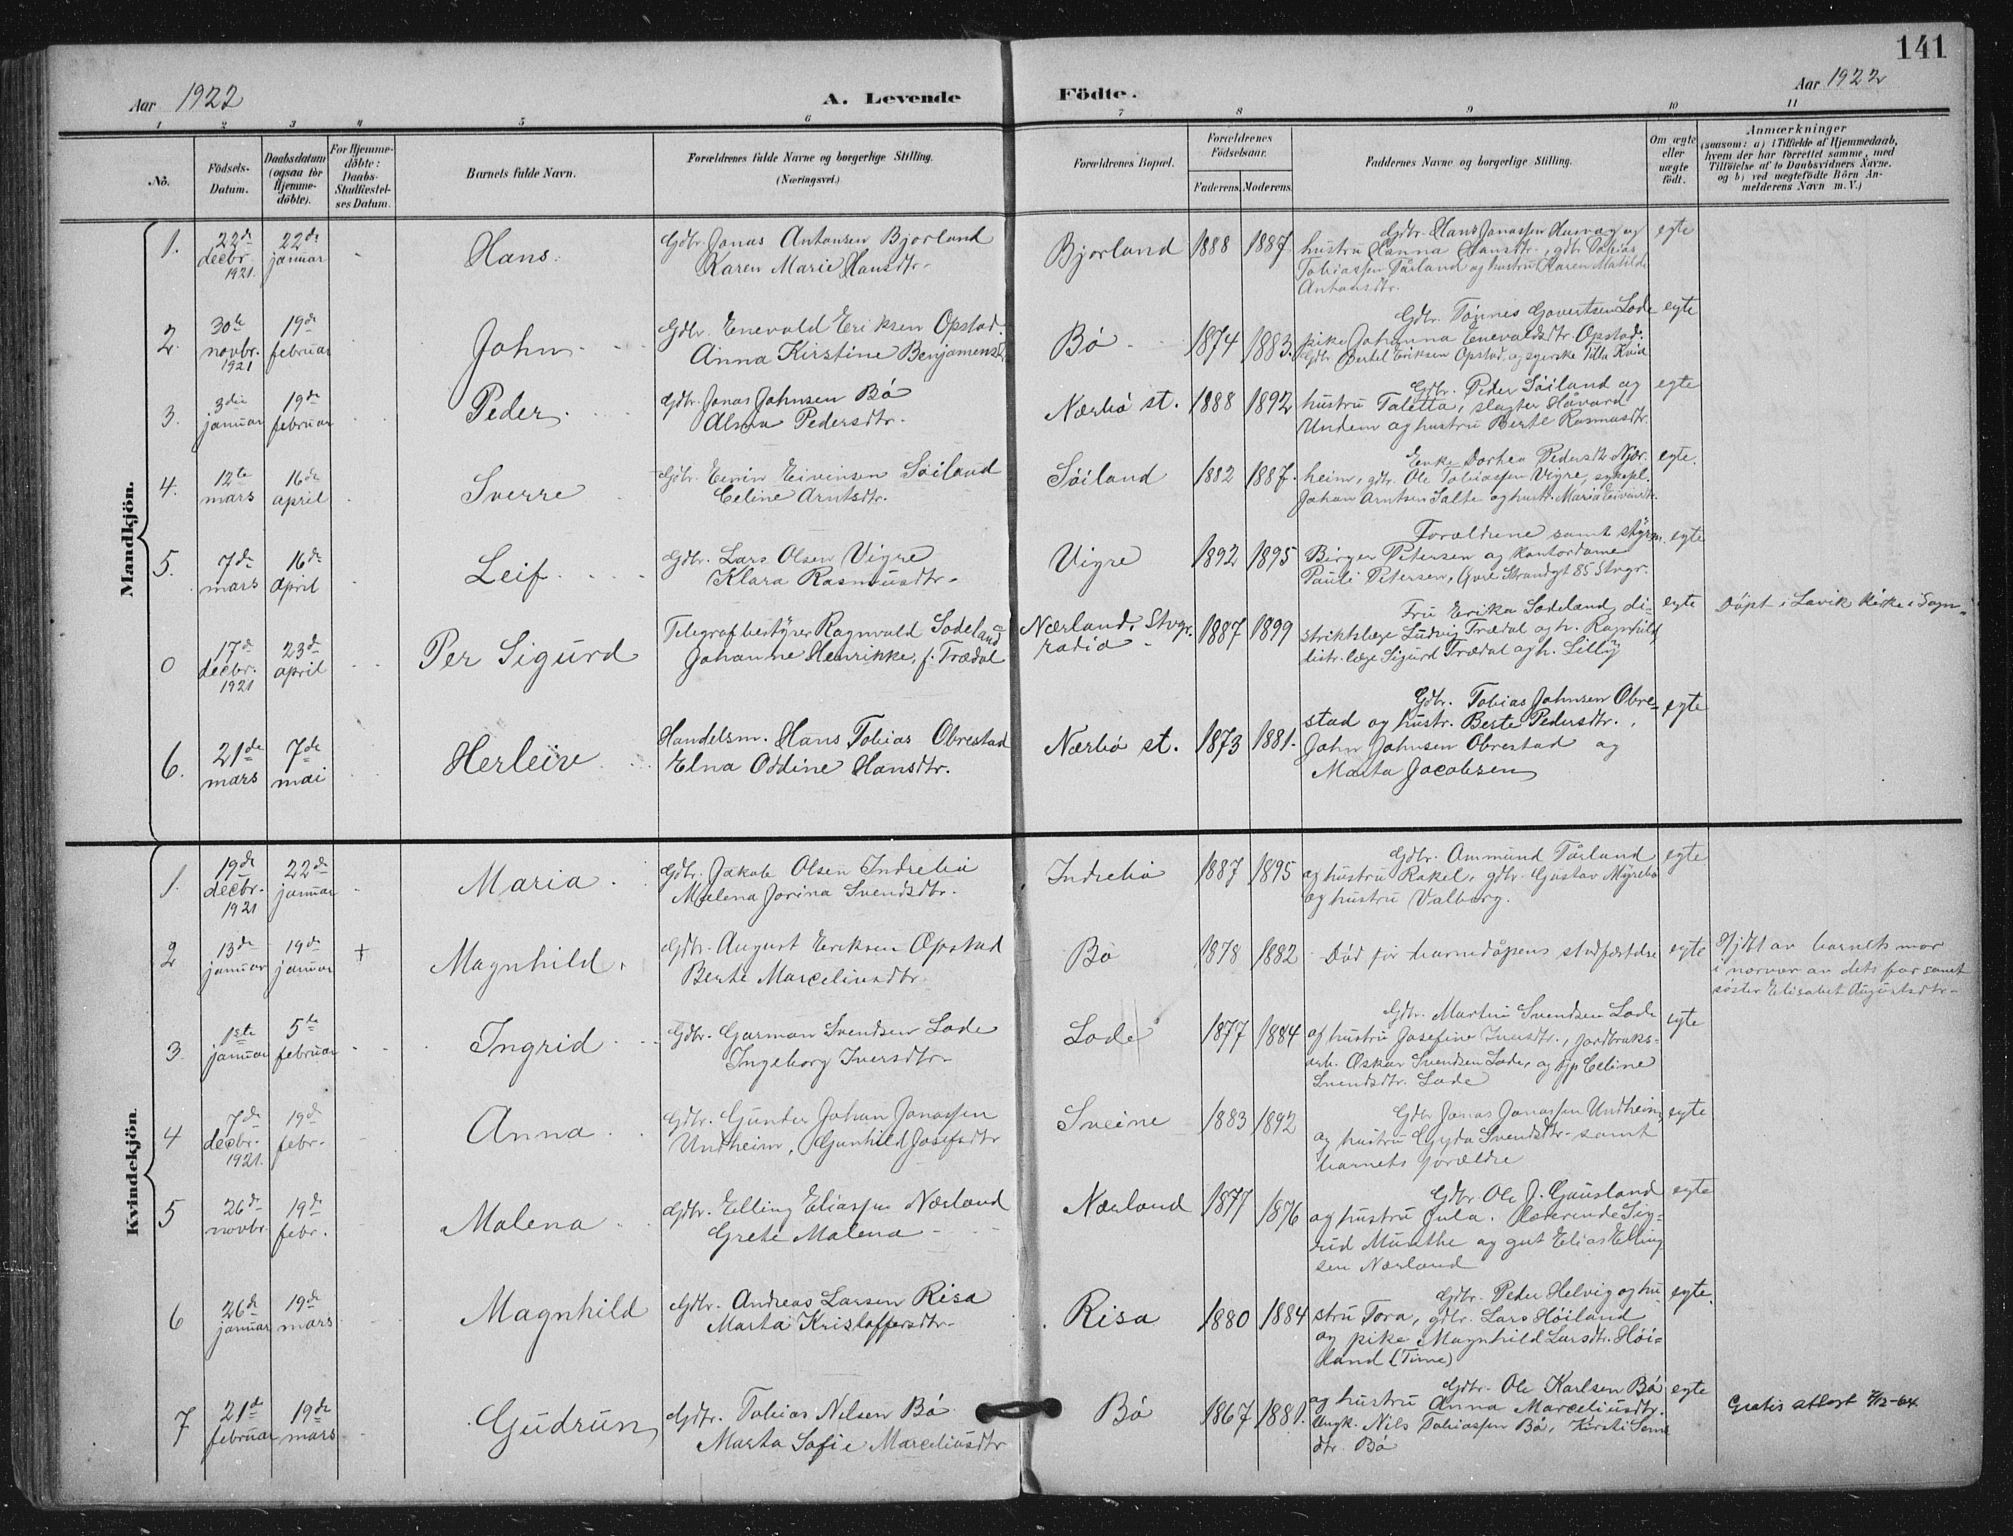 141
Aar 1922
A. Levende Födte.
Aar 1922
1 2 3 4 5 6 7 8 9 10 11
No.
Födsels-
Datum.
Daabsdatum
(ogsaa för
Hjemme-
döbte).
For Hjemme-
döbte:
Daabs-
Stadfæstel-
ses Datum.
Barnets fulde Navn.
Forældrenes fulde Navne og borgerlige Stilling.
(Næringsvei.)
Forældrenes Bopæl.
Forældrenes
Födselsaar.
Faderens. Moderens.
Faddernes Navne og borgerlige Stilling.
Om ægte
eller
uægte
födt.
Anmærkninger
(saasom: a) i Tilfælde af Hjemmedaab,
hvem der har forrettet samme, med
Tilföielse af to Daabsvidners Navne.
og b) ved uægtefödte Börn An-
melderens Navn m. V.)
Mandkjön.
1.
22de
decbr.
1921.
22de
januar
Hans.
Gdbr. Jonas Antonsen Bjorland
Karen Marie Hansdtr.
Bjorland
1888 1887.
Gdbr. Hans Jonassen Husvag og
hustru Hanna Hansdtr., gdbr. Tobias
Tobiassen Tårland og hustru Karen Matilde
Antonsdtr.
egte
2.
30te
novbr.
1921
19de
februar
John
Gdbr. Enevald Eriksen Opstad.
Anna Kirstine Benjaminsd.
Bø
1874 1883.
Gdbr. Tønnes Govertsen Lode
pike Johanna Enevaldsdtr. Opstad.
Gdbr. Bertel Eriksen Opstad, og syerske Tilla Kvia
egte
3.
3die
januar
19de
februar
Peder.
Gdbr. Jonas Johnsen Bø
Alma Pedersdtr.
Nærbø st.
1888 1892
Gdbr. Peder Søiland og
hustru Taletta, slagter Håvard
Undem og hustru Berte Rasmusdtr.
egte
4.
12te
mars
16de
april
Sverre
Gdbr. Eivin Eivinsen Søiland
Celine Arntsdtr.
Søiland
1882 1887.
Enke Dorthea Pedersdtr. Njær-
heim, gdbr. Ole Tobiassen Vigre, sykepl.
Johan Arntsen Salte og hustr. Maria Eivinsdtr.
egte.
5.
7de
mars
16de
april
Leif
Gdbr. Lars Olsen Vigre
Klara Rasmusdtr.
Vigre
1892 1895
Forældrene samt styrm.
Birger Petersen og kontordame
Pauli Petersen, Øvre Strandgt 85 Stvgr.
egte
0
17de
decbr.
1921
23de
april
Per Sigurd
Telegrafbestyrer Ragnvald Sodeland
Johanne Henrikke, f. Trædal
Nærland, Stvgr.
radio
1887 1899
Fru Erika Sodeland, di-
striktslæge Ludvig Trædal og h. Ragnhild
distr. læge Sigurd Trædal og h. Lilly
egte
Døpt i Lavik kirke i Sogn.
6.
21de
mars
7de
mai
Herleiv
Handelsm. Hans Tobias Obrestad
Elna Oddine Hansdtr.
Nærbø st.
1873 1881.
Gdbr. Tobias Johnsen Obre-
stad og hustr. Berte Pedersdtr.
John Johnsen Obrestad og
Marta Jacobsen
egte
Kvindekjön.
1.
19de
decbr.
1921
22de
januar
Maria
Gdbr. Jakob Olsen Indrebø
Malena Jorina Svendsdtr.
Indrebø
1887 1895
Gdbr. Ommund Tårland
og hustru Rakel, gdbr. Gustav Myrebø
og hustru Valborg.
egte
2
13de
januar
19de
januar
+
Magnhild.
Gdbr. August Eriksen Opstad
Berte Marceliusdtr.
Bø
1878 1882
Død før barnedåpens stadfæstelse
egte
Hjdpt av barnets mor
i nærvær av dets far samt
søster Elisabet Augustsdtr.
3.
1ste
januar
5te
februar
Ingrid
Gdbr. Garman Svendsen Lode
Ingeborg Iversdtr.
Lode
1877 1884
Gdbr. Martin Svendsen Lode
og hustru Josefine Iversdtr., jordbruks-
arb. Oskar Svendsen Lode, og tjp Celine
Svendsdtr. Lode
egte
4
7de
decbr.
1921.
19de
febr.
Anna
Gdbr. Gunder Johan Jonassen
Undheim, Gunhild Josefsdtr
Sveine
1883 1892
Gdbr Jonas Jonassen Undheim,
og hustru Gyda Svendsdtr. samt
barnets forældre
egte
5
26de
novbr.
19de
febr.
Malena
Gdbr. Elling Eliassen Nærland
Grete Malena
Nærland
1877 1876
Gdbr. Ole J. Gausland
og hustru Jula. Lærerinde Sig-
rid Munthe og gut Elias Elling
sen Nærland
egte
6
26de
januar
19de
mars
Magnhild
Gdbr. Andreas Larsen Risa
Marta Kristoffersdtr.
Risa
1880 1884
Gdbr. Peder Helvig og hu-
stru Tora, gdbr. Lars Høiland
og pike Magnhild Larsdtr. Høi-
land (Time)
egte.
7
21de
februar
19de
mars
Gudrun
Gdbr. Tobias Nilsen Bø
Marta Sofie Marceliusdtr
Bø
1867 1881.
Gdbr. Ole Karlsen Bø
og hustru Anna Marceliusdtr.
Ungk. Nils Tobiassen Bø, Kirsti
dtr. Bø
egte
Gratis attest 7/2-64